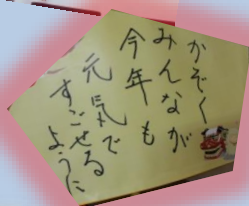 かぞく
みんなが
今年も
元気で
すごせる
ように